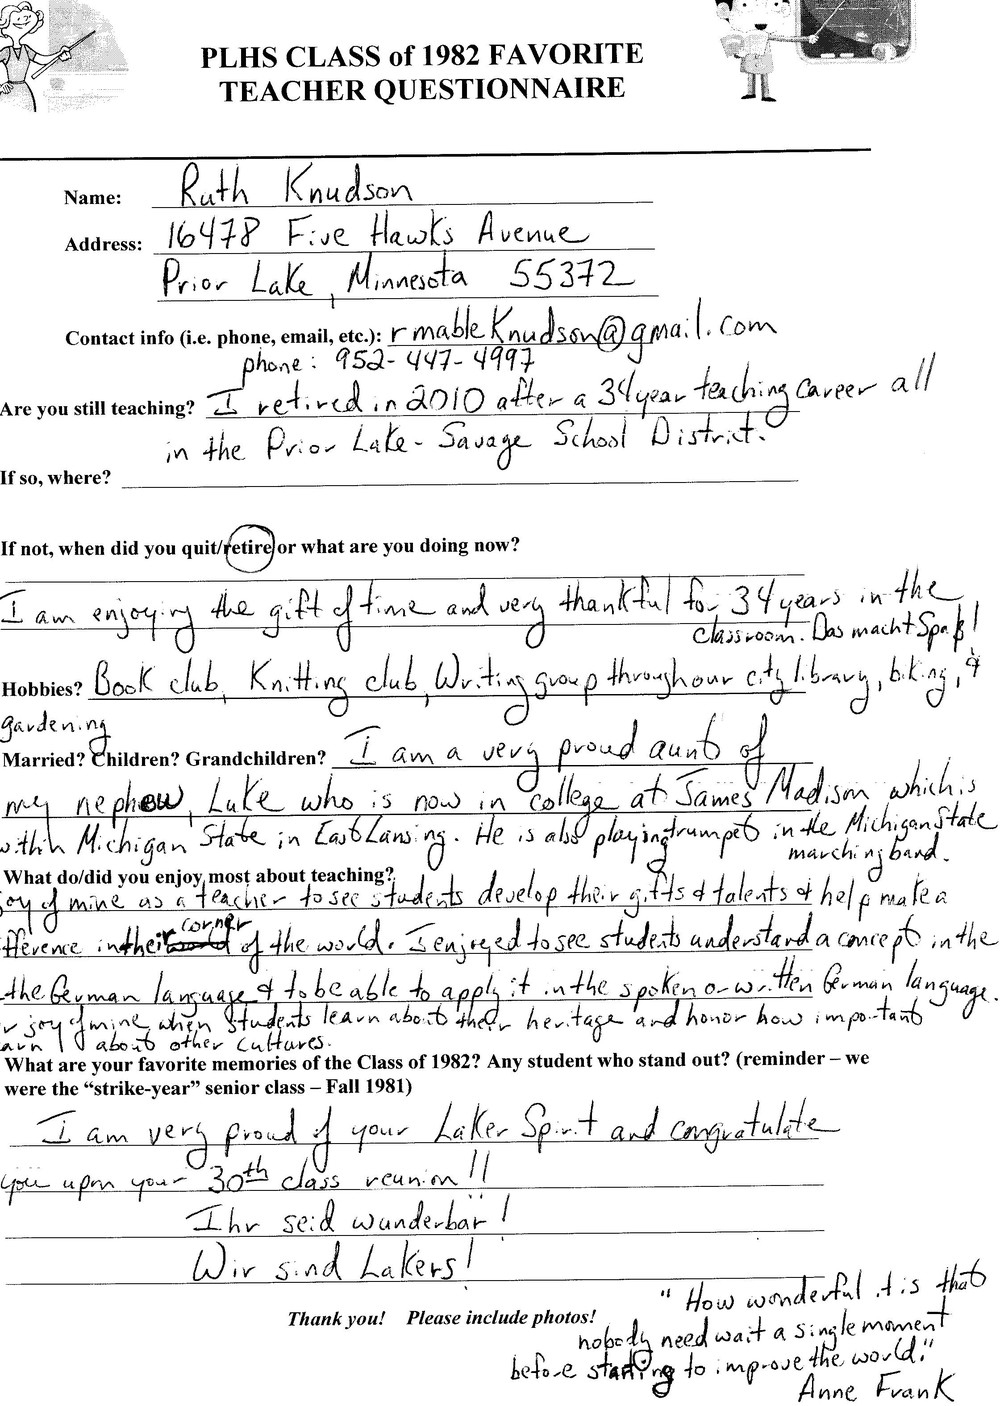 PLHS CLASS of 1982 FAVORITE
TEACHER QUESTIONNAIRE
Name: Ruth Knudson
Address: 16478 Five Hawks Avenue
Prior Lake, Minnesota 55372
Contact info (i.e. phone, email, etc.): rmableknudson@gmail.com
phone: 952-447-4997
Are you still teaching? I retired in 2010 after a 34 year teaching career all
in the Prior Lake-Savage School District.
If so, where?
If not, when did you quit/retire or what are you doing now?
I am enjoying the gift of time and very thankful for 34 years in the
classroom. Das macht Spaß!
Hobbies? Book club, Knitting club, Writing group through our city library, biking, &
gardening
Married? Children? Grandchildren? I am a very proud aunt of
my nephew, Luke who is now in college at James Madison which is
within Michigan State in East Lansing. He is also playing trumpet in the Michigan State
marching band.
What do/did you enjoy most about teaching?
joy of mine as a teacher to see students develop their gifts & talents & help make a
fference in their corner of the world. I enjoyed to see students understand a concept in the
the German language & to be able to apply it in the spoken or written German language.
r joy of mine when students learn about their heritage and honor how important
arn about other cultures.
What are your favorite memories of the Class of 1982? Any student who stand out? (reminder – we
were the “strike-year” senior class – Fall 1981)
I am very proud of your Laker Spirit and congratulate
you upon your 30th class reunion!!
Ihr seid wunderbar!
Wir sind Lakers!
Thank you! Please include photos!
"How wonderful it is that
nobody need wait a single moment
before starting to improve the world."
Anne Frank